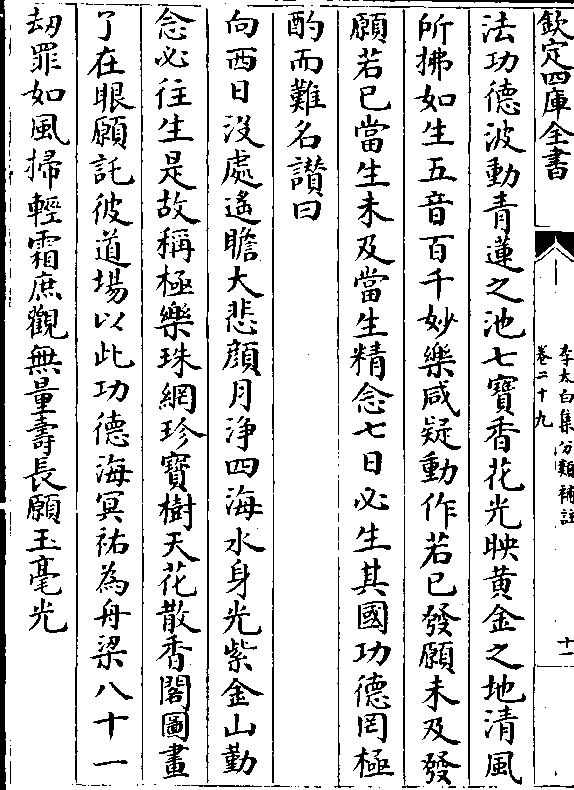 欽定四庫全書
李太白集分類補註
卷二十九
十一
法功德波動青蓮之池七寶香花光映黄金之地清風
所拂如生五音百千妙樂咸疑動作若已發願未及發
願若已當生未及當生精念七日必生其國功德罔極
酌而難名讃曰
向西日沒處遙瞻大悲顔月淨四海水身光紫金山勤
念必往生是故稱極樂珠網珍寶樹天花散香閣圖畫
了在眼願託彼道場以此功德海冥祐為舟梁八十一
刼罪如風掃輕霜庶觀無量壽長願玉毫光